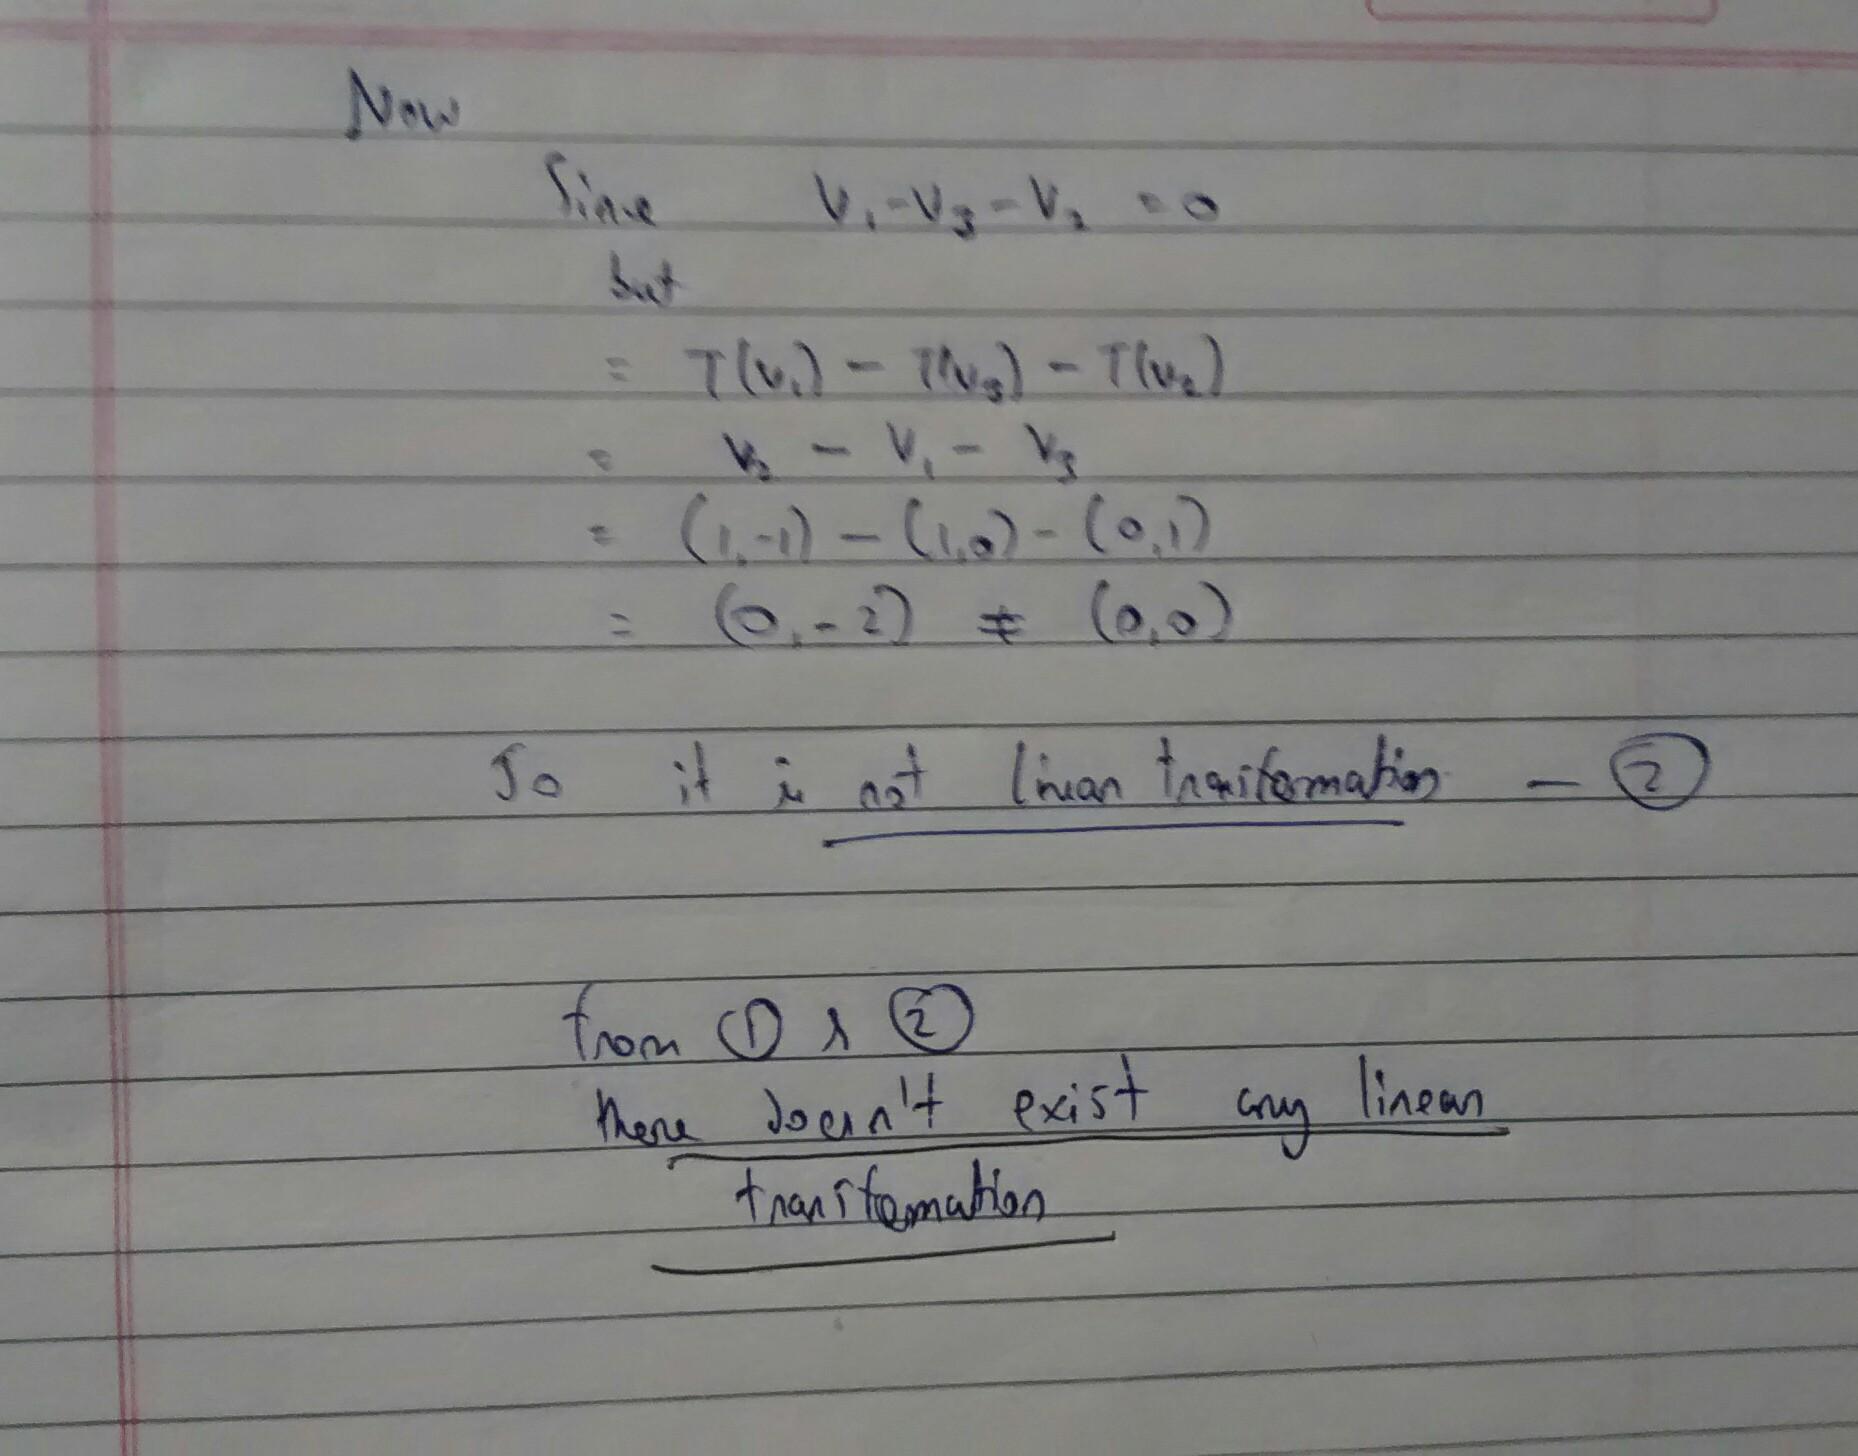 Now
Since V₁-V₃-V₂ = 0
but
= T(v₁) - T(v₃) - T(v₂)
= V₂ - V₁ - V₃
= (1,-1) - (1,0) - (0,1)
= (0,-2) ≠ (0,0)
So it is not linear transformation - ②
from ① & ②
there doesn't exist any linear
transformation